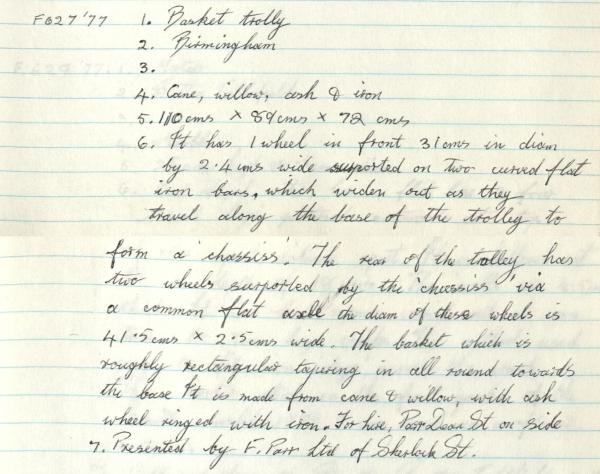 F627'77 1. Basket trolly
2. Birmingham
3.
4. Cane, willow, ash & iron
5. 110cms × 89cms × 72 cms
6. It has 1 wheel in front 31cms in diam
by 2.4cms wide surported on two curved flat
iron bars, which widen out as they
travel along the base of the trolley to
form a 'chassiss'. The rear of the trolley has
two wheels surported by the 'chassiss' via
a common flat axell the diam of these wheels is
41.5cms × 2.5cms wide. The basket which is
roughly rectangular tapering in all round towards
the base It is made from cane & willow, with ash
wheel ringed with iron. For hire, Parr Dean St on side
7. Presented by F. Parr Ltd of Sherlock St.